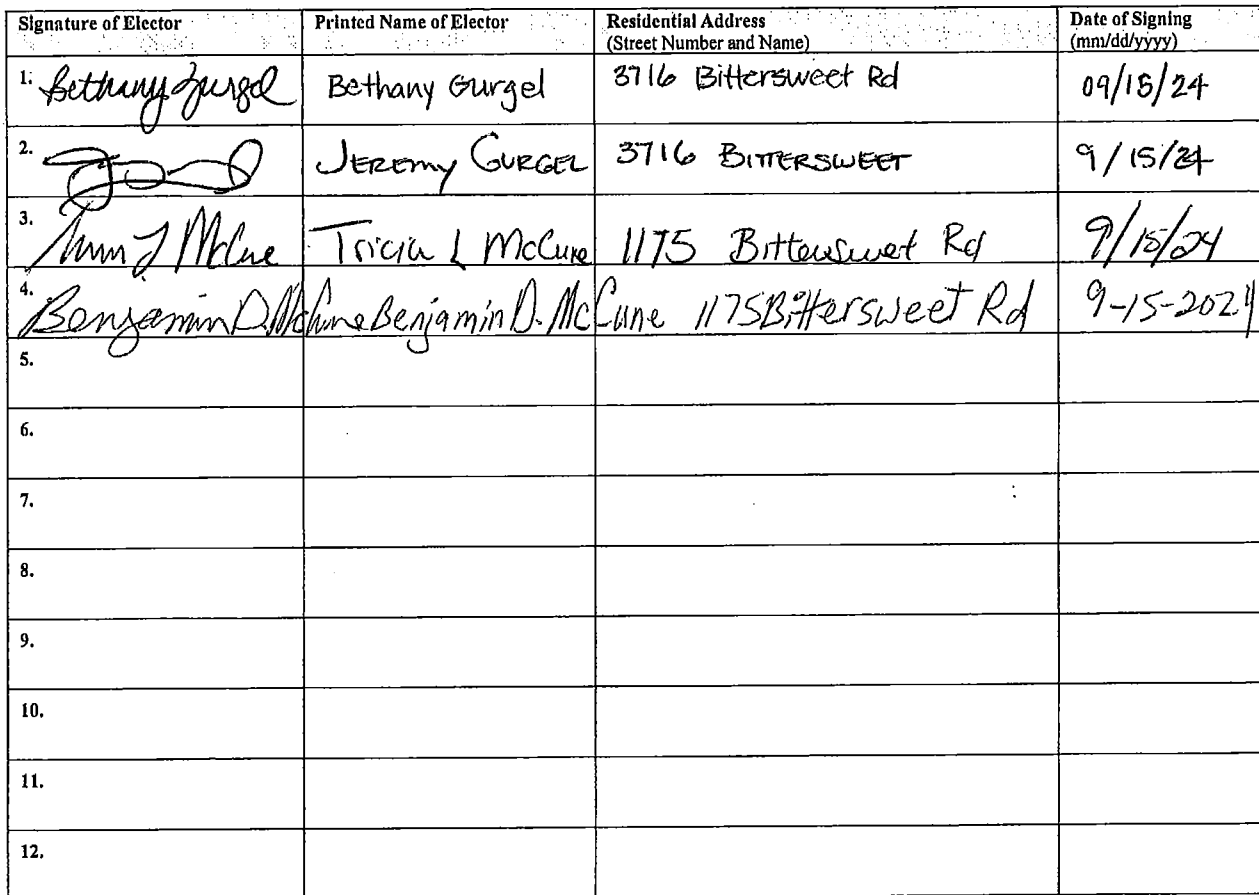 Signature of Elector Printed Name of Elector Residential Address Date of Signing
(Street Number and Name) (mm/dd/yyyy)
1. Bethany Gurgel Bethany Gurgel 3716 Bittersweet Rd 09/15/24
2. JEREMY GURGEL 3716 BITTERSWEET 9/15/24
3. McCune Tricia L McCune 1175 Bittersweet Rd 9/15/24
4. Benjamin D. McCune Benjamin D. McCune 1175 Bittersweet Rd 9-15-2024
5.
6.
7.
8.
9.
10.
11.
12.